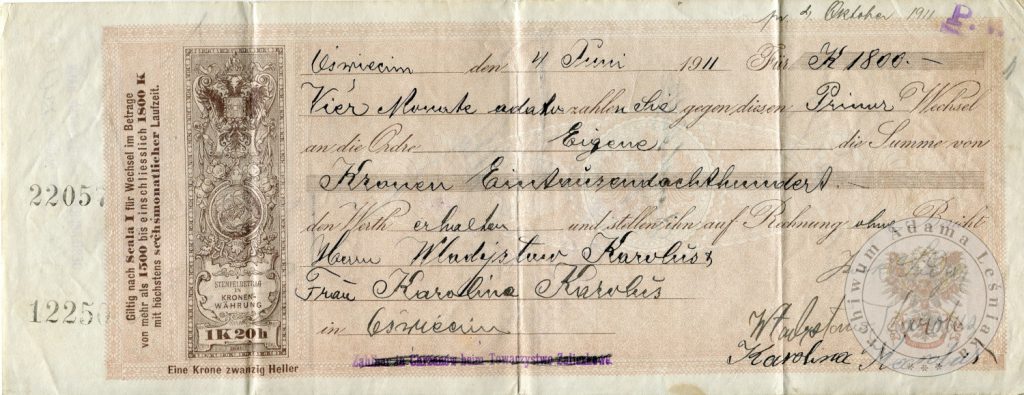 pr 4 Oktober 1911 P.
Oświecim den 4 Juni 1911 Für K 1800.—
Vier Monate adato zahlen Sie gegen diesen Primar Wechsel
an die Ordre Eigene die Summe von
Kronen Eintauzendachthundert.—
den Werth erhalten und stellen ihn auf Rechnung ohne Bericht
Herrn Władysław Karoluś &
Frau Karolina Karoluś
in Oświecim
Karolina
Zahlbar in beim Towarzystwo
Giltig nach Scala I für Wechsel im Betrage
von mehr als 1500 bis einschliesslich 1800 K
mit höchstens sechsmonatlicher Laufzeit.
STEMPELBETRAG
IN
KRONEN-
WÄHRUNG
1 K 20 h
Eine Krone zwanzig Heller
22057
12250
Archiwum Adama Leśniak